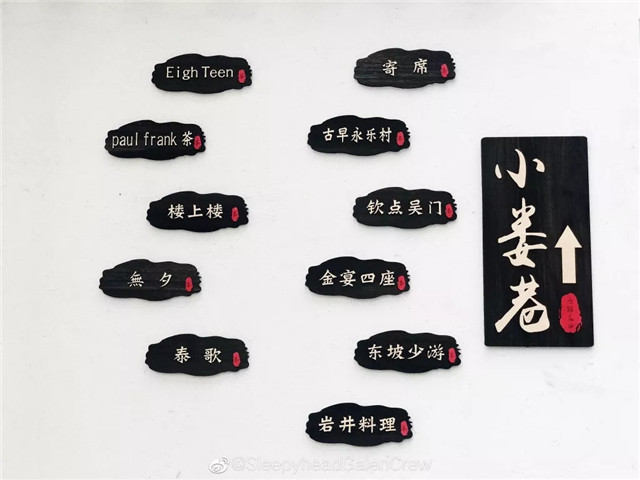 EighTeen
paul frank 茶
楼上楼
無夕
泰歌
寄席
古早永乐村
钦点吴门
金宴四座
东坡少游
岩井料理
小娄巷
@SleepyheadGalanCrew